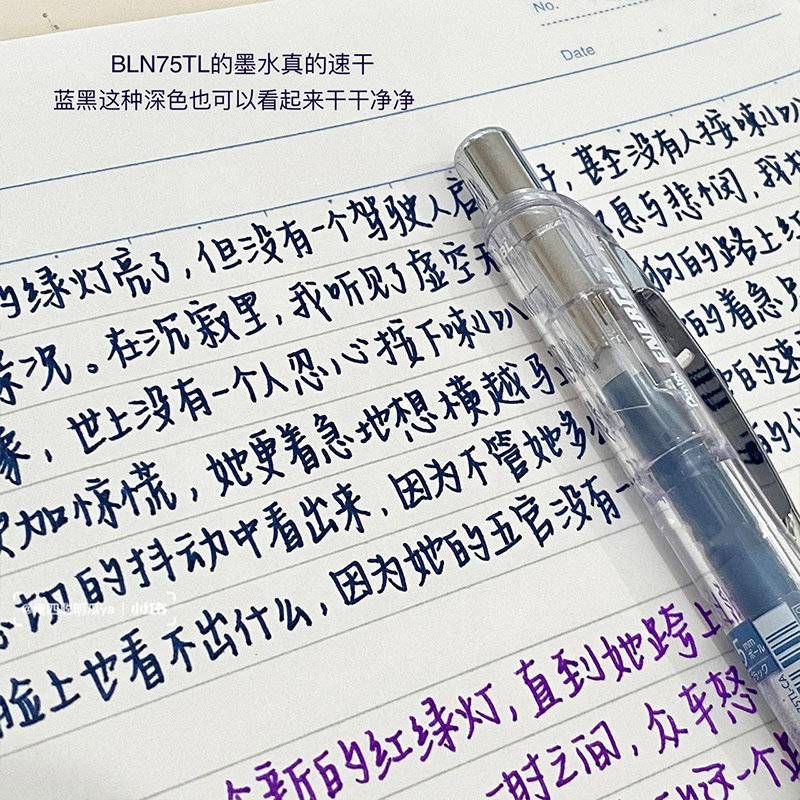 No.
Date
BLN75TL的墨水真的速干
蓝黑这种深色也可以看起来干干净净
绿灯亮了,但没有一个驾驶人启 子,甚至没有人按喇叭
况。在沉寂里,我听见了虚空 息与悲悯,我
象,世上没有一个人忍心按下喇叭 狗的路上红
加惊慌,她更着急地想横越马 的着急
切的抖动中看出来,因为不管她多 的速
脸上也看不出什么,因为她的五官没有一 的
个新的红绿灯,直到她跨上
时之间,众车怒
一个
ENERGEL
Pentel
5mm
ボール
小红书